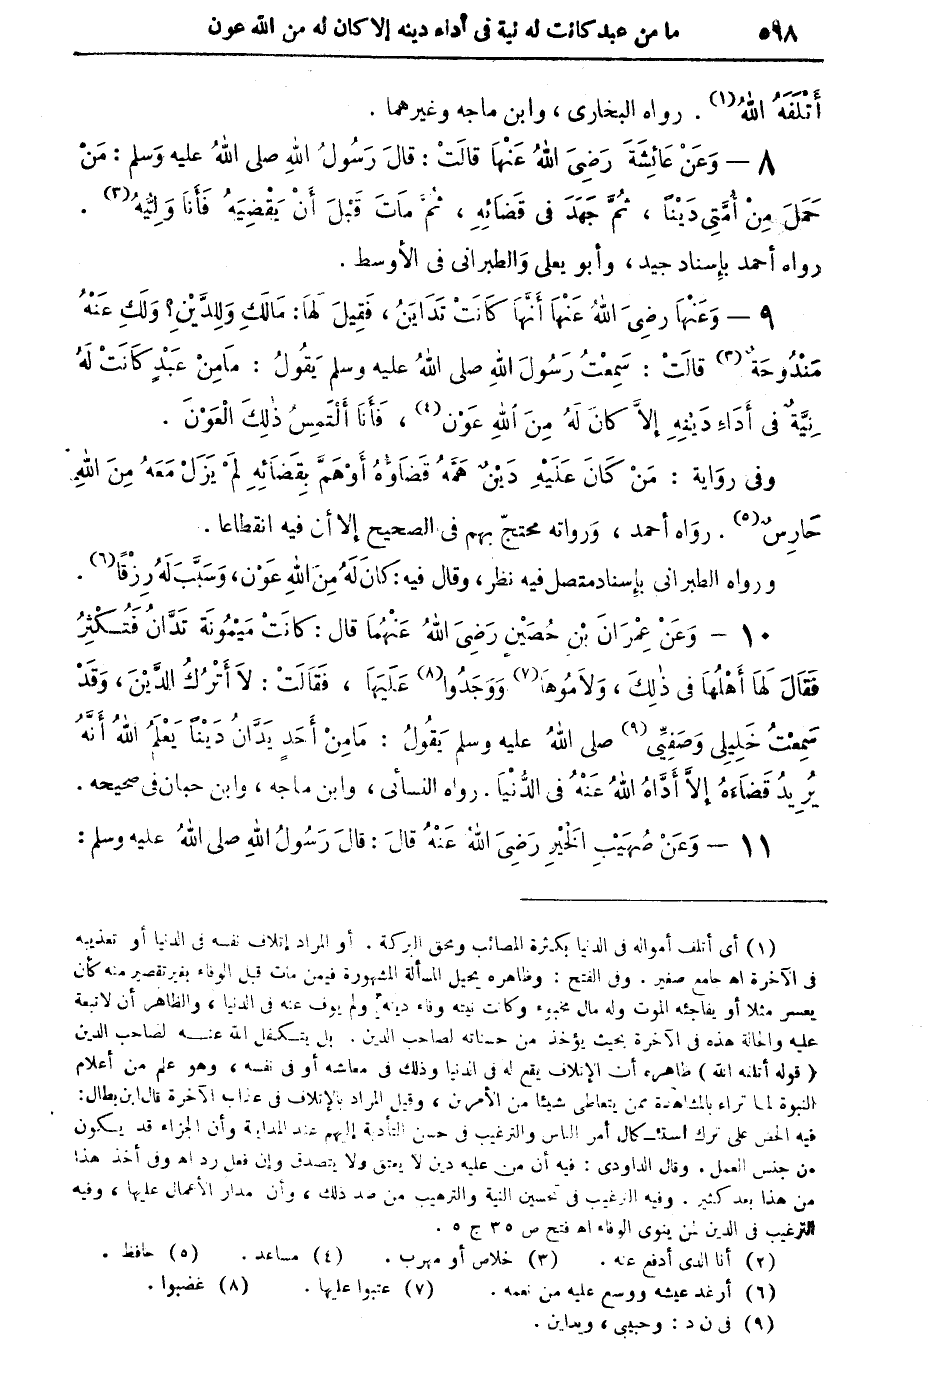 ٥٩٨ ما من عبد كانت له نية فى أداء دينه إلا كان له من الله عون
أَتْلَفَهُ اللهُ (١) . رواه البخارى ، وابن ماجه وغيرهما .
٨ — وَعَنْ عَائِشَةَ رَضِىَ اللهُ عَنْهَا قالَتْ : قالَ رَسُولُ اللهِ صلى اللهُ عليه وَسلم : مَنْ
حَمَلَ مِنْ أُمَّتِى دَيْنًا ، ثُمَّ جَهَدَ فى قَضَائِهِ ، ثُمَّ مَاتَ قَبْلَ أَنْ يَقْضِيَهُ فَأَنَا وَلِيُّهُ (٢) .
رواه أحمد بإسناد جيد ، وأبو يعلى وَالطبرانى فى الأوسط .
٩ — وَعَنْهَا رضِىَ اللهُ عَنْهَا أَنَّهَا كَانَتْ تَدَايَنُ ، فَقِيلَ لَهَا : مَالَكِ وَلِلدَّيْنِ ؟ وَلَكِ عَنْهُ
مَنْدُوحَةٌ (٣) قالَتْ : سَمِعْتُ رَسُولَ اللهِ صلى اللهُ عليه وسلم يَقُولُ : مَامِنْ عَبْدٍ كَانَتْ لَهُ
نِيَّةٌ فى أَدَاءِ دَيْنِهِ إلاَّ كانَ لَهُ مِنَ اللهِ عَوْن (٤) ، فَأَنَا أَلْتَمِسُ ذٰلِكَ الْعَوْنَ .
وفى رواية : مَنْ كَانَ عَلَيْهِ دَيْنٌ هَمُّهُ قَضَاؤُهُ أَوْ هَمَّ بِقَضَائِهِ لَمْ يَزَلْ مَعَهُ مِنَ اللهِ
حَارِسٌ (٥) . رَواه أحمد ، وَرواته محتجّ بهم فى الصحيح إلا أن فيه انقطاعا .
ورواه الطبرانى بإسناد متصل فيه نظر ، وقال فيه : كانَ لَهُ مِنَ اللهِ عَوْن ، وَسَبَّبَ لَهُ رِزْقًا (٦) .
١٠ — وَعَنْ عِمْرَانَ بْنِ حُصَيْنٍ رَضِىَ اللهُ عَنْهُمَا قال : كانَتْ مَيْمُونَة تَدَّانُ فَتُكْثِرُ
فَقَالَ لَهَا أَهْلُهَا فى ذٰلِكَ ، وَلاَمُوهَا (٧) وَوَجَدُوا (٨) عَلَيْهَا ، فَقَالَتْ : لاَ أَتْرُكُ الدَّيْنَ ، وَقَدْ
سَمِعْتُ خَلِيلِى وَصَفِيِّى (٩) صلى اللهُ عليه وسلم يَقُولُ : مَامِنْ أَحَدٍ يَدَّانُ دَيْنًا يَعْلَمُ اللهُ أَنَّهُ
يُرِيدُ قَضَاءَهُ إِلاَّ أَدَّاهُ اللهُ عَنْهُ فى الدُّنْيَا . رواه النسأئى ، وابن ماجه ، وابن حبان فى صحيحه .
١١ — وَعَنْ صُهَيْبِ الْخَيْرِ رَضِىَ اللهُ عَنْهُ قالَ : قالَ رَسُولُ اللهِ صلى اللهُ عليه وسلم :
(١) أى أتلف أمواله فى الدنيا بكثرة المصائب ومحق البركة . أو المراد إتلاف نفسه فى الدنيا أو تعذيبه
فى الآخرة اه جامع صغير . وفى الفتح : وظاهره يحيل المسألة المشهورة فيمن مات قبل الوفاء بغير تقصير منه كأن
يعسر مثلا أو يفاجئه الموت وله مال مخبوء وكانت نيته وفاء دينه ولم يوف عنه فى الدنيا ، والظاهر أن لاتبعة
عليه والحالة هذه فى الآخرة بحيث يؤخذ من حسناته لصاحب الدين . بل يتكفل الله عنه لصاحب الدين
( قوله أتلفه الله ) ظاهره أن الإتلاف يقع له فى الدنيا وذلك فى معاشه أو فى نفسه ، وهو علم من أعلام
النبوة لما تراه بالمشاهدة ممن يتعاطى شيئا من الأمرين ، وقيل المراد بالإتلاف فى عذاب الآخرة قال ابن بطال :
فيه الحض على ترك استئكال أمر الناس والترغيب فى حسن التأدية إليهم عند المداينة وأن الجزاء قد يكون
من جنس العمل . وقال الداودى : فيه أن من عليه دين لا يعتق ولا يتصدق وإن فعل رد اه وفى أخذ هذا
من هذا بعد كثير . وفيه الترغيب فى تحسين النية والترهيب من ضد ذلك ، وأن مدار الأعمال عليها ، وفيه
الترغيب فى الدين لمن ينوى الوفاء اه فتح ص ٣٥ ج ٥ .
(٢) أنا الذى أدفع عنه . (٣) خلاص أو مهرب . (٤) مساعد . (٥) حافظ .
(٦) أرغد عيشه ووسع عليه من نعمه . (٧) عتبوا عليها . (٨) غضبوا .
(٩) فى ن د : وحبيبى ، ويداين .